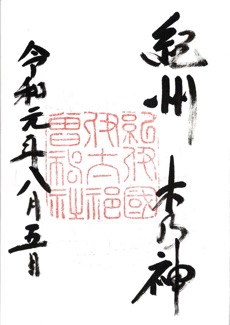 紀州 木乃神
紀伊國
伊太祁
曽神社
令和元年八月五日